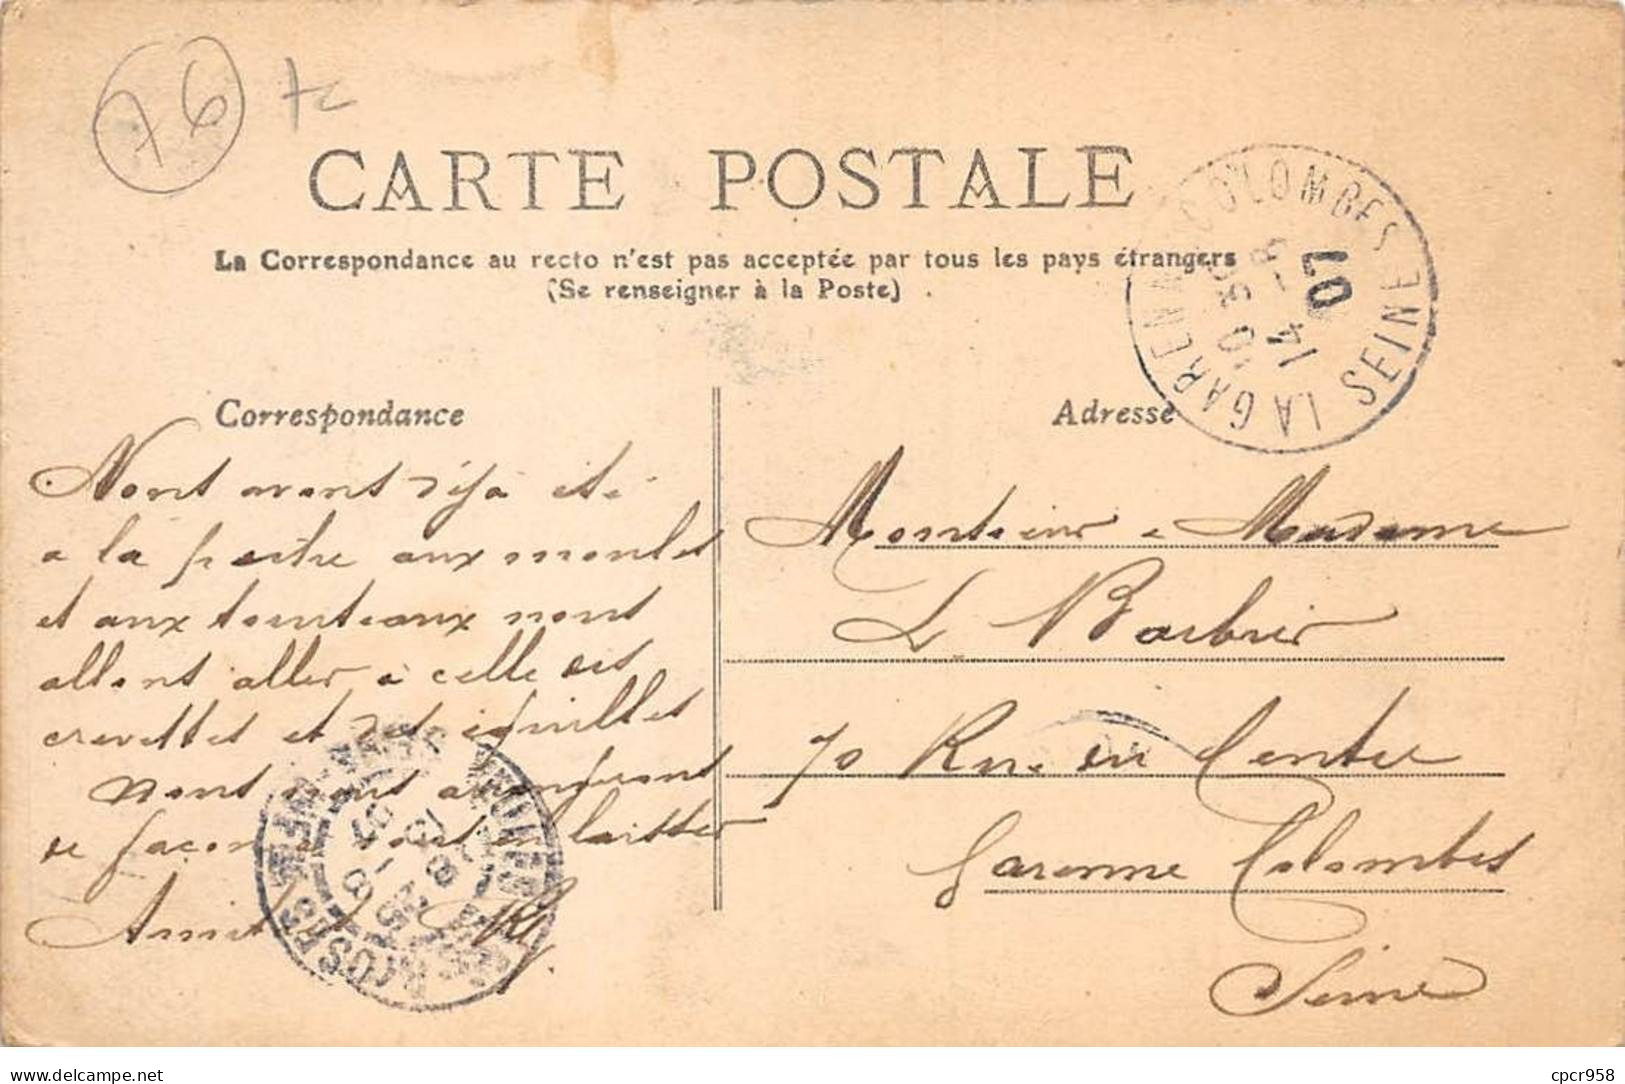 76
CARTE POSTALE
La Correspondance au recto n'est pas acceptée par tous les pays étrangers
(Se renseigner à la Poste)
LA GARENNE COLOMBES SEINE
10 50
14 - 8
07
Correspondance
Adresse
Nous avons déjà été
a la peche aux moules
et aux tourteaux nous
allons aller à celle des
crevettes et des equilles
nous nous arrangeons
de façon a vous en laisser
Amitiés
Monsieur & Madame
L Barbier
70 Rue du Centre
Garenne Colombes
Seine
www.delcampe.net
cpcr958